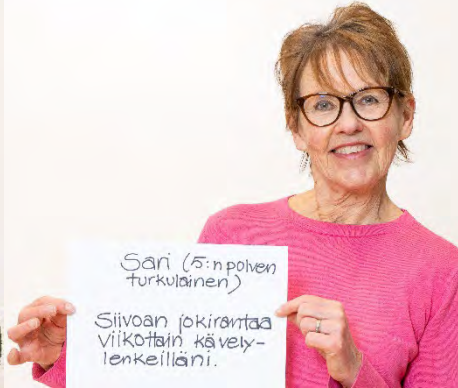 Sari (5:n polven
turkulainen)
Siivoan jokirantaa
viikottain kävely-
lenkeilläni.